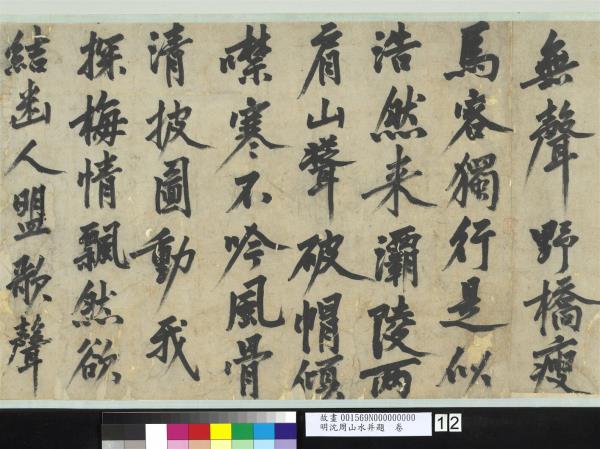 無聲野橋瘦
馬客獨行是似
浩然来灞陵兩
肩山聳破帽傾
噤寒不吟風骨
清披圖動我
探梅情飄然欲
結幽人盟歌聲
故畫 001569N000000000
明沈周山水并題 卷
12